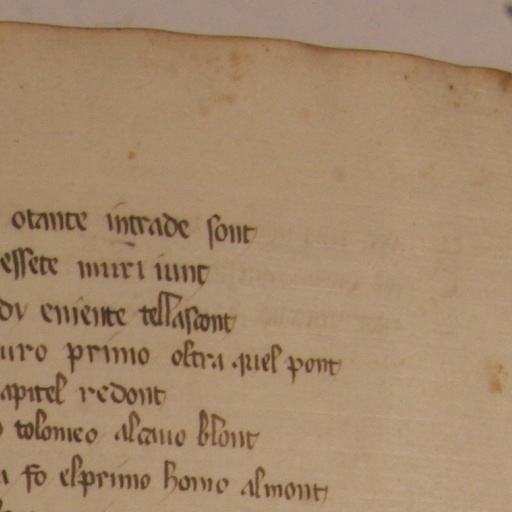 otante intrade sont
essete muri iunt
du eniente tellascont
uro primo oltra quel pont
apitel redont
tolomeo alcauo blont
fo elprimo homo almont